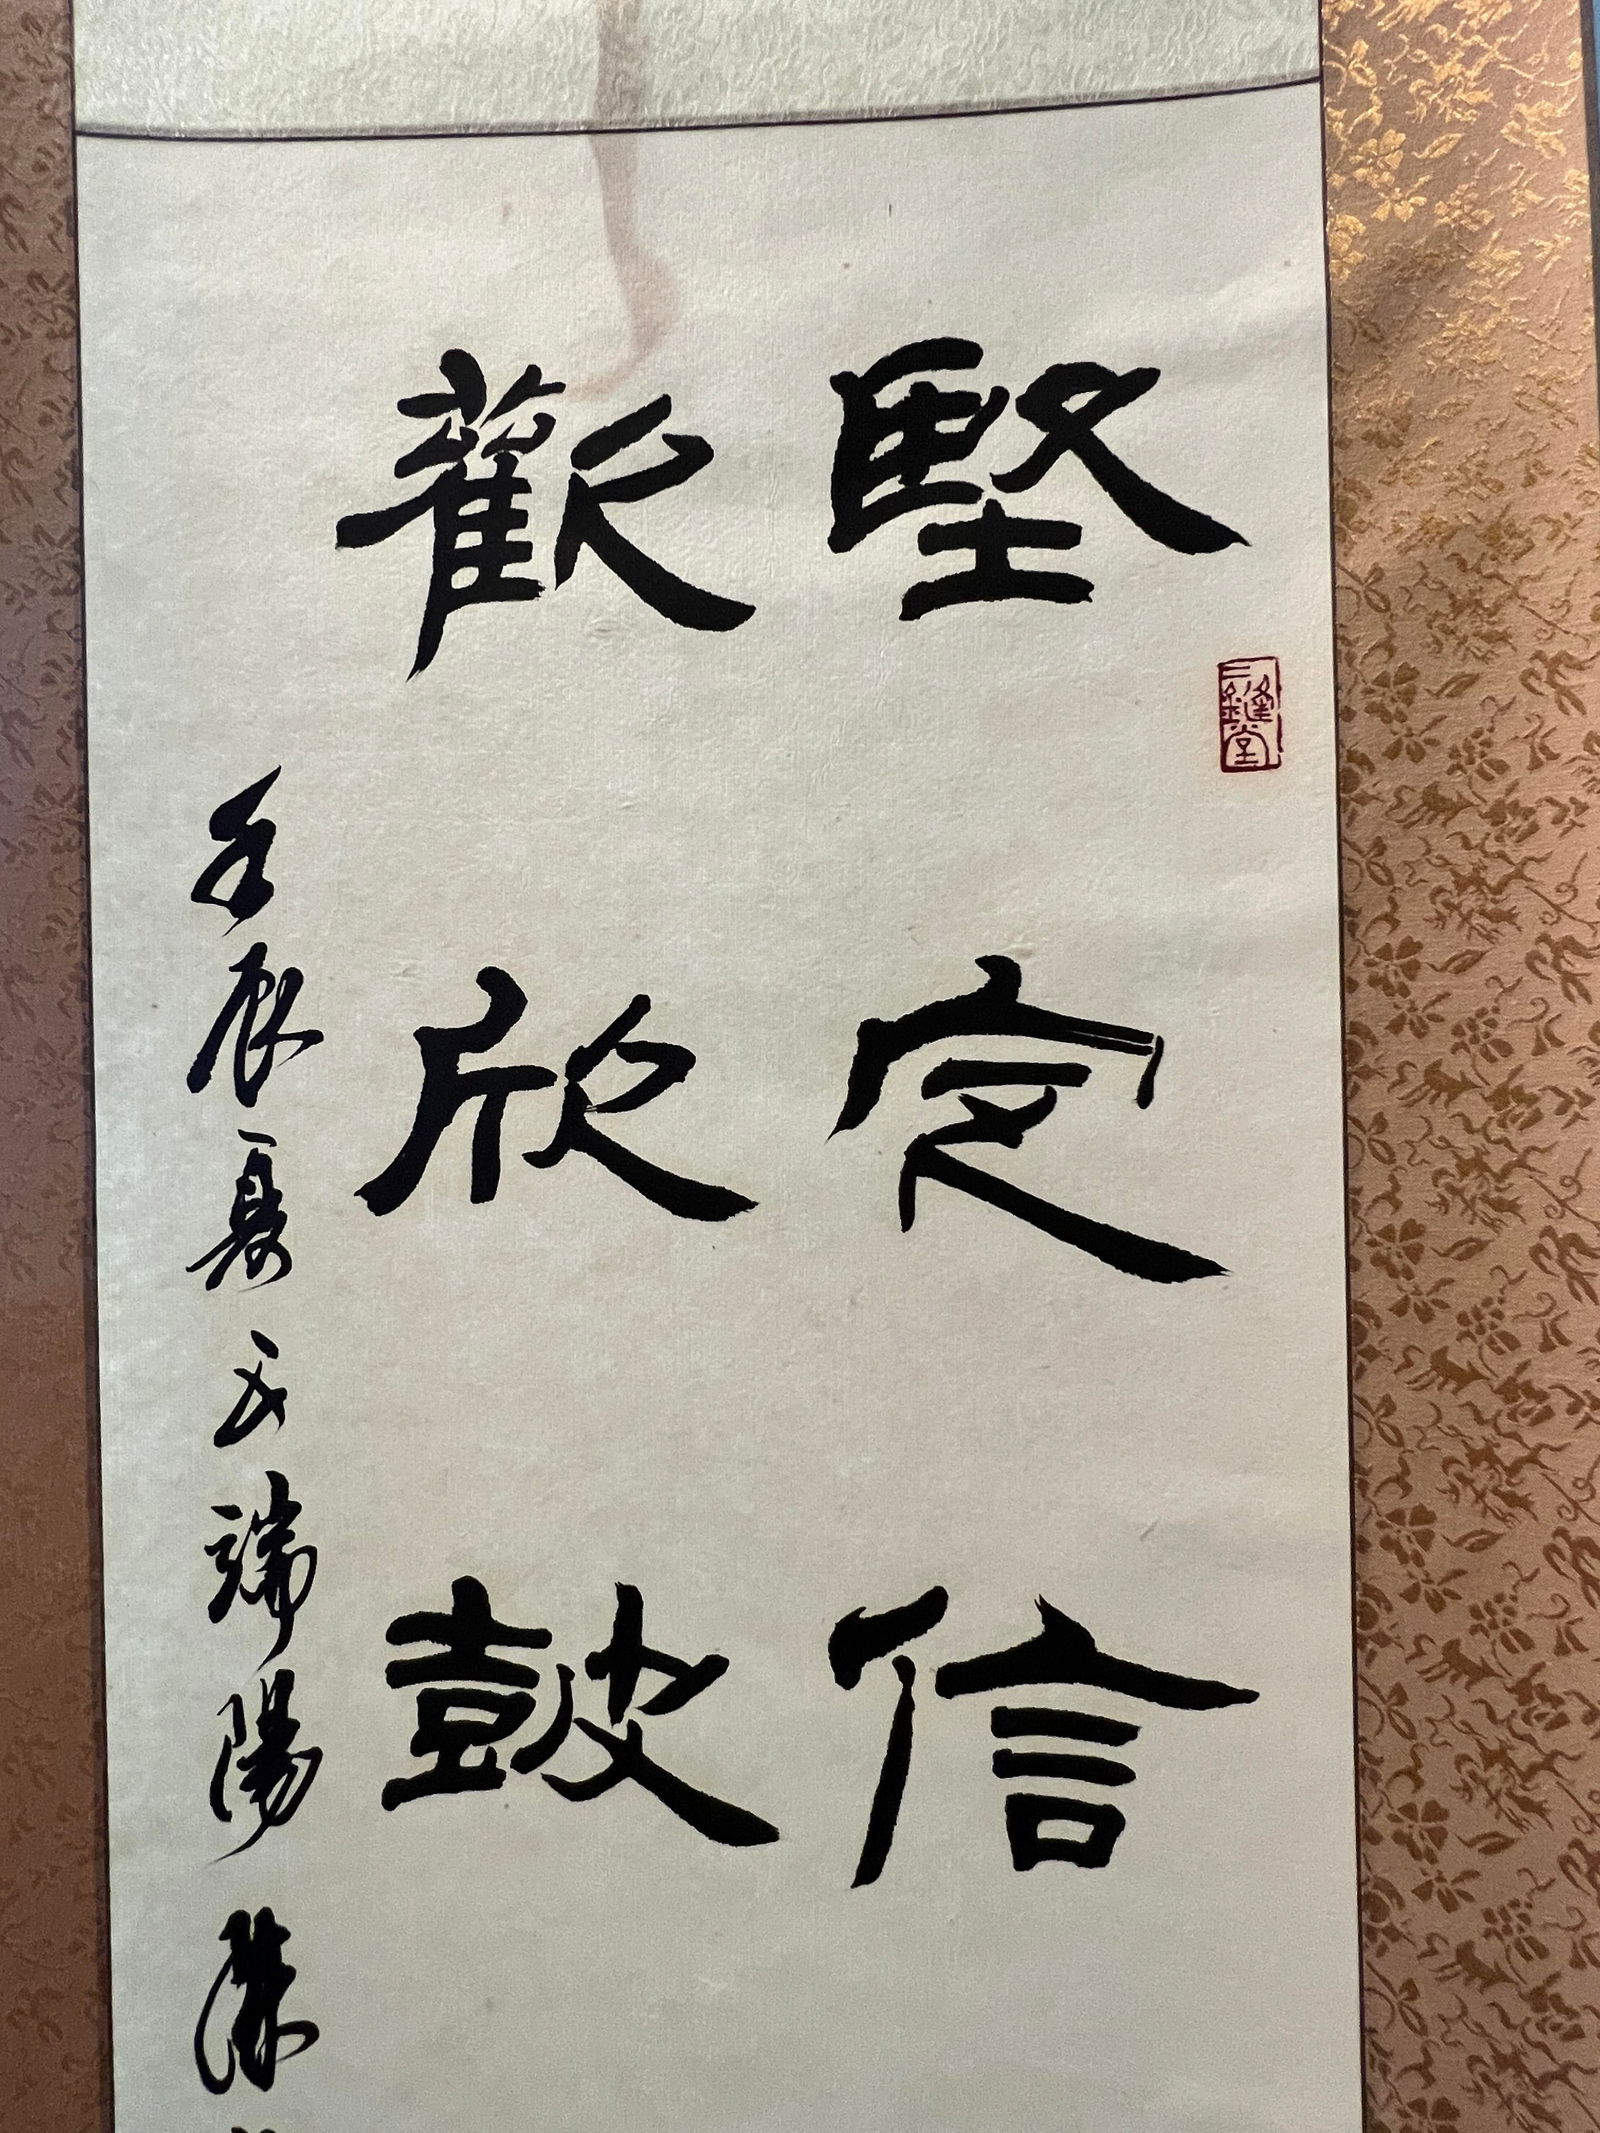 堅定信
歡欣鼓
壬辰夏五端陽